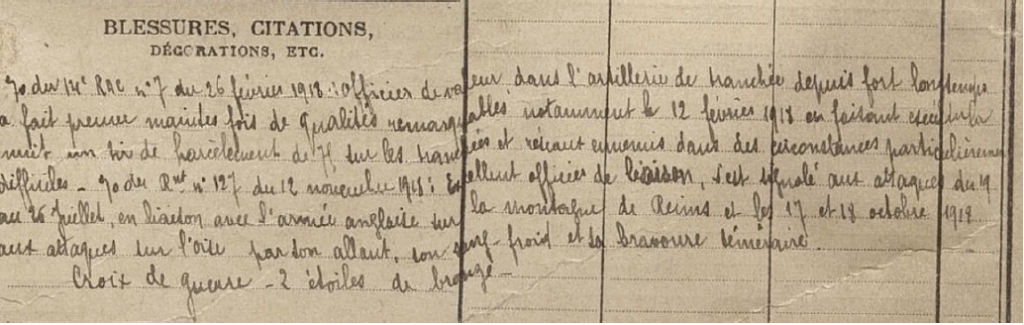 BLESSURES, CITATIONS,
DÉCORATIONS, ETC.
Jo du 14e RAC n°7 du 26 février 1918 : officier de valeur, dans l'artillerie de tranchée depuis fort longtemps
a fait preuve maintes fois de qualités remarquables notamment le 12 février 1918 en faisant exécuter la
nuit un tir de harcèlement de 7h sur les tranchées et réseaux ennemis dans des circonstances particulièrement
difficiles - Jo du Rnt n° 127 du 12 novembre 1918 : Excellent officier de liaison, s'est signalé aux attaques du 19
au 26 Juillet, en liaison avec l'armée anglaise sur la montagne de Reims et les 17 et 18 octobre 1918
aux attaques sur l'oise par son allant, son sang-froid et sa bravoure téméraire.
Croix de guerre - 2 étoiles de bronze -